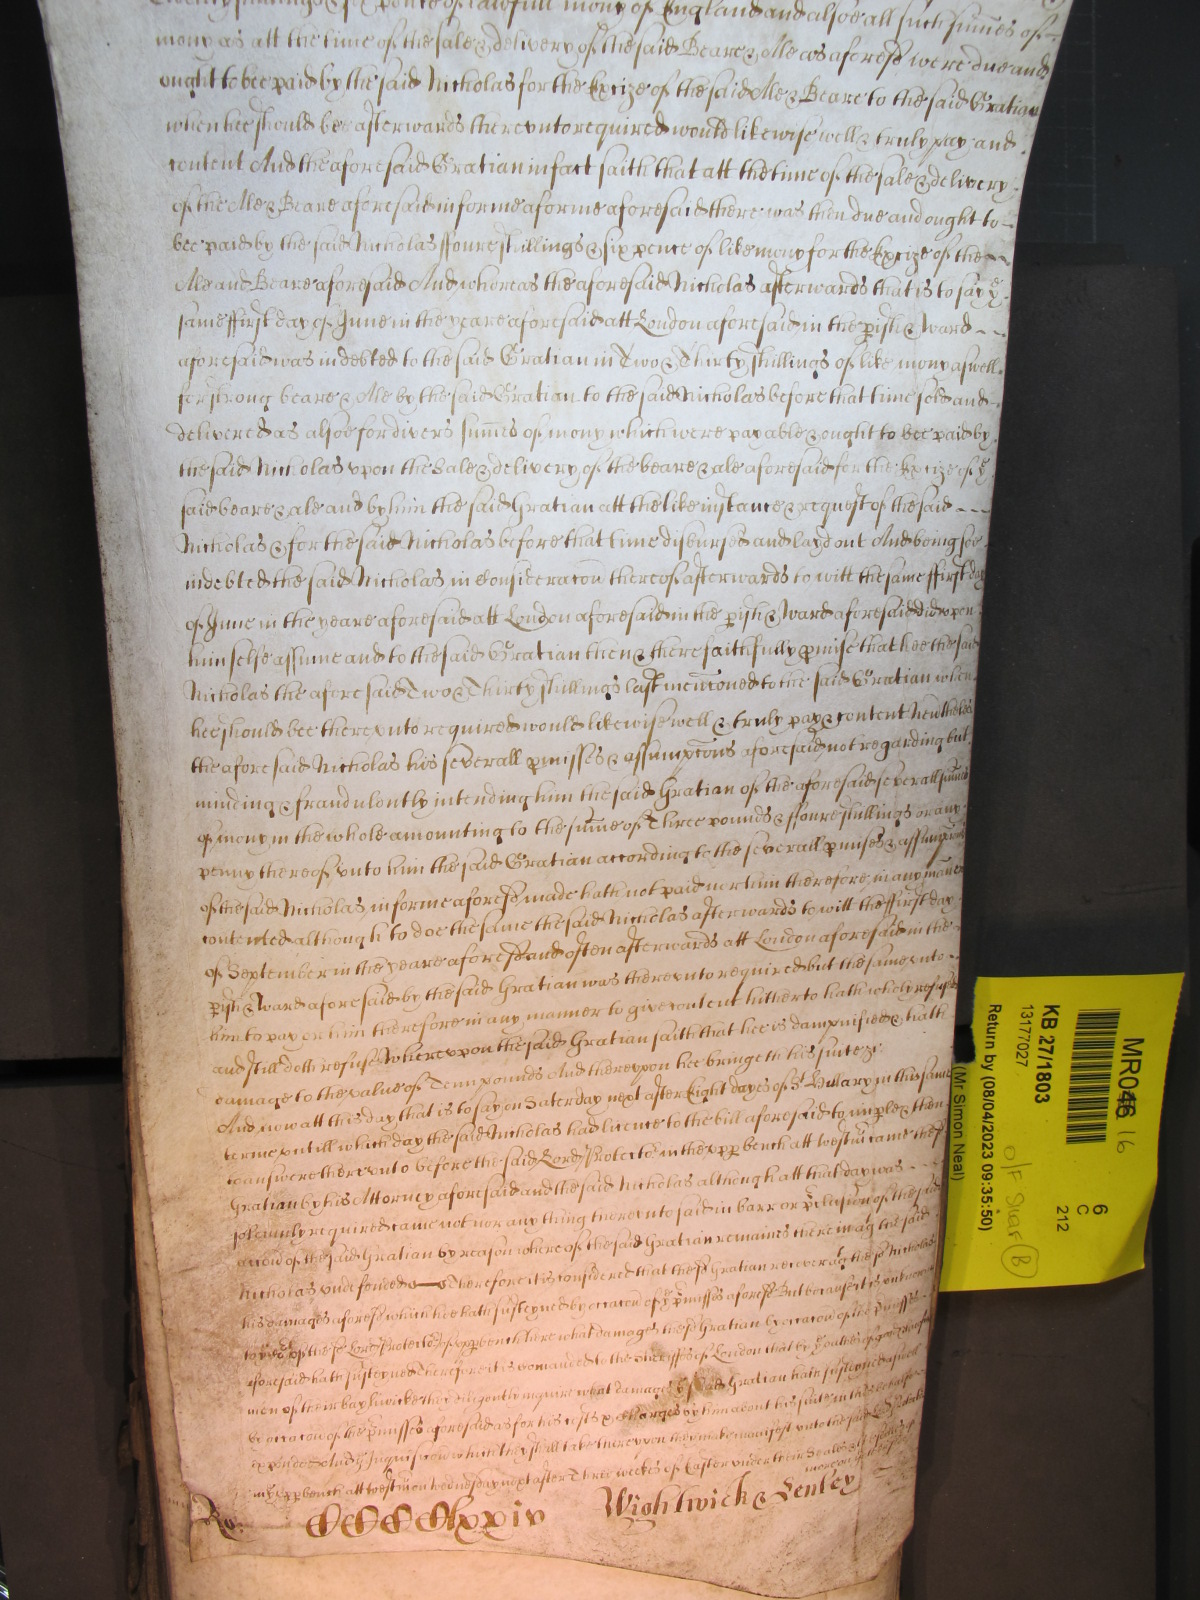 Twenty shillings & six pence of lawfull mony of England and alsoe all such sumes of
mony as att the time of the sale & delivery of the said Beare & Ale as aforesd were due and
ought to bee paid by the said Nicholas for the Excize of the said Ale & Beare to the said Gratian
when hee should bee afterwards therevnto required would likewise well & truly pay and
content And the aforesaid Gratian in fact saith that att the time of the sale & delivery
of the Ale & Beare aforesaid in forme aforme aforesaid there was then due and ought to
bee paid by the said Nicholas ffoure shillings & six pence of like mony for the Excize of the
Ale and Beare aforesaid And whereas the aforesaid Nicholas afterwards that is to say ye
same ffirst day of June in the yeare aforesaid att London aforesaid in the pish & Ward
aforesaid was indebted to the said Gratian in Two & Thirty shillings of like mony aswell
for strong beare & Ale by the said Gratian to the said Nicholas before that time sold and
delivered as alsoe for divers sumes of mony which were payable & ought to bee paid by
the said Nicholas vpon the Sale & delivery of the beare & ale aforesaid for the Excize of ye
said beare & ale and by him the said Gratian att the like instance & request of the said
Nicholas & for the said Nicholas before that time disbursed and layd out And being soe
indebted the said Nicholas in Consideracon thereof afterwards to witt the same ffirst day
of June in the yeare aforesaid att London aforesaid in the pish & Ward aforesaid did vpon
himselfe assume and to the said Gratian then & there faithfully pmise that hee the said
Nicholas the aforesaid Two & Thirty shillings last mencioned to the said Gratian when
hee should bee therevnto required would likewise well & truly pay & content Neverthelesse
the aforesaid Nicholas his severall pmisses & assumpcons aforesaid not regarding but
minding & fraudulently intending him the said Gratian of the aforesaid severall sumes
of mony in the whole amounting to the sume of Three pounds & ffoure shillings or any
penny thereof vnto him the said Gratian according to the severall pmises & assumpcons
of the said Nicholas in forme aforesd made hath not paid nor him therefore in any manner
contented although to doe the same the said Nicholas afterwards to witt the ffirst day
of September in the yeare aforesd and often afterwards att London aforesaid in the
pish & Ward aforesaid by the said Gratian was therevnto required but the same vnto
him to pay or him therefore in any manner to give content hitherto hath wholy refused
and still doth refuse Wherevpon the said Gratian saith that hee is dampnified & hath
damage to the value of Tenn pounds And therevpon hee bringeth his suite &c
And now att this day that is to say on Saturday next after Eight dayes of St Hillary in this same
terme vntill which day the said Nicholas had licence to the bill aforesaid to imple & then
to answere therevnto before the said Lord Protector in the vpp bench att Westm came the sd
Gratian by his Attorney aforesaid and the said Nicholas although att that day was
solemnly required came not nor any thing therevnto said in barr or pclusion of the said
accon of the said Gratian by reason whereof the said Gratian remaines therein agt the said
Nicholas vndefended Therefore it is considered that the sd Gratian recover agt the sd Nicholas
his damages aforesd which hee hath susteyned by occacon of ye pmisses aforesd But because it is vnknowne
to ye Cort of the sd Lord Protector of ye vpp bench here what damages the sd Gratian by occacon of the pmisses
aforesaid hath susteyned Therefore it is comanded to the Sheriffes of London that by ye oathes of good & lawfull
men of their baylywicke they diligently inquire what damages ye said Gratian hath susteyned aswell
by occacon of the pmisses aforesaid as for his costs & charges by him about his suite in that behalfe
expended And ye Inquisicon which they shall take therevpon they make manifest vnto the said Lord Protector
in ye vpp bench att Westm on Wednesday next after Three weekes of Easter vnder their Seales
Ro: CCCCCxxiv Wightwick & Lenley
MR046 16
KB 27/1803
13177027
Return by (08/04/2023 09:35:50)
(Mr Simon Neal)
6
C
212
O/F Shar B